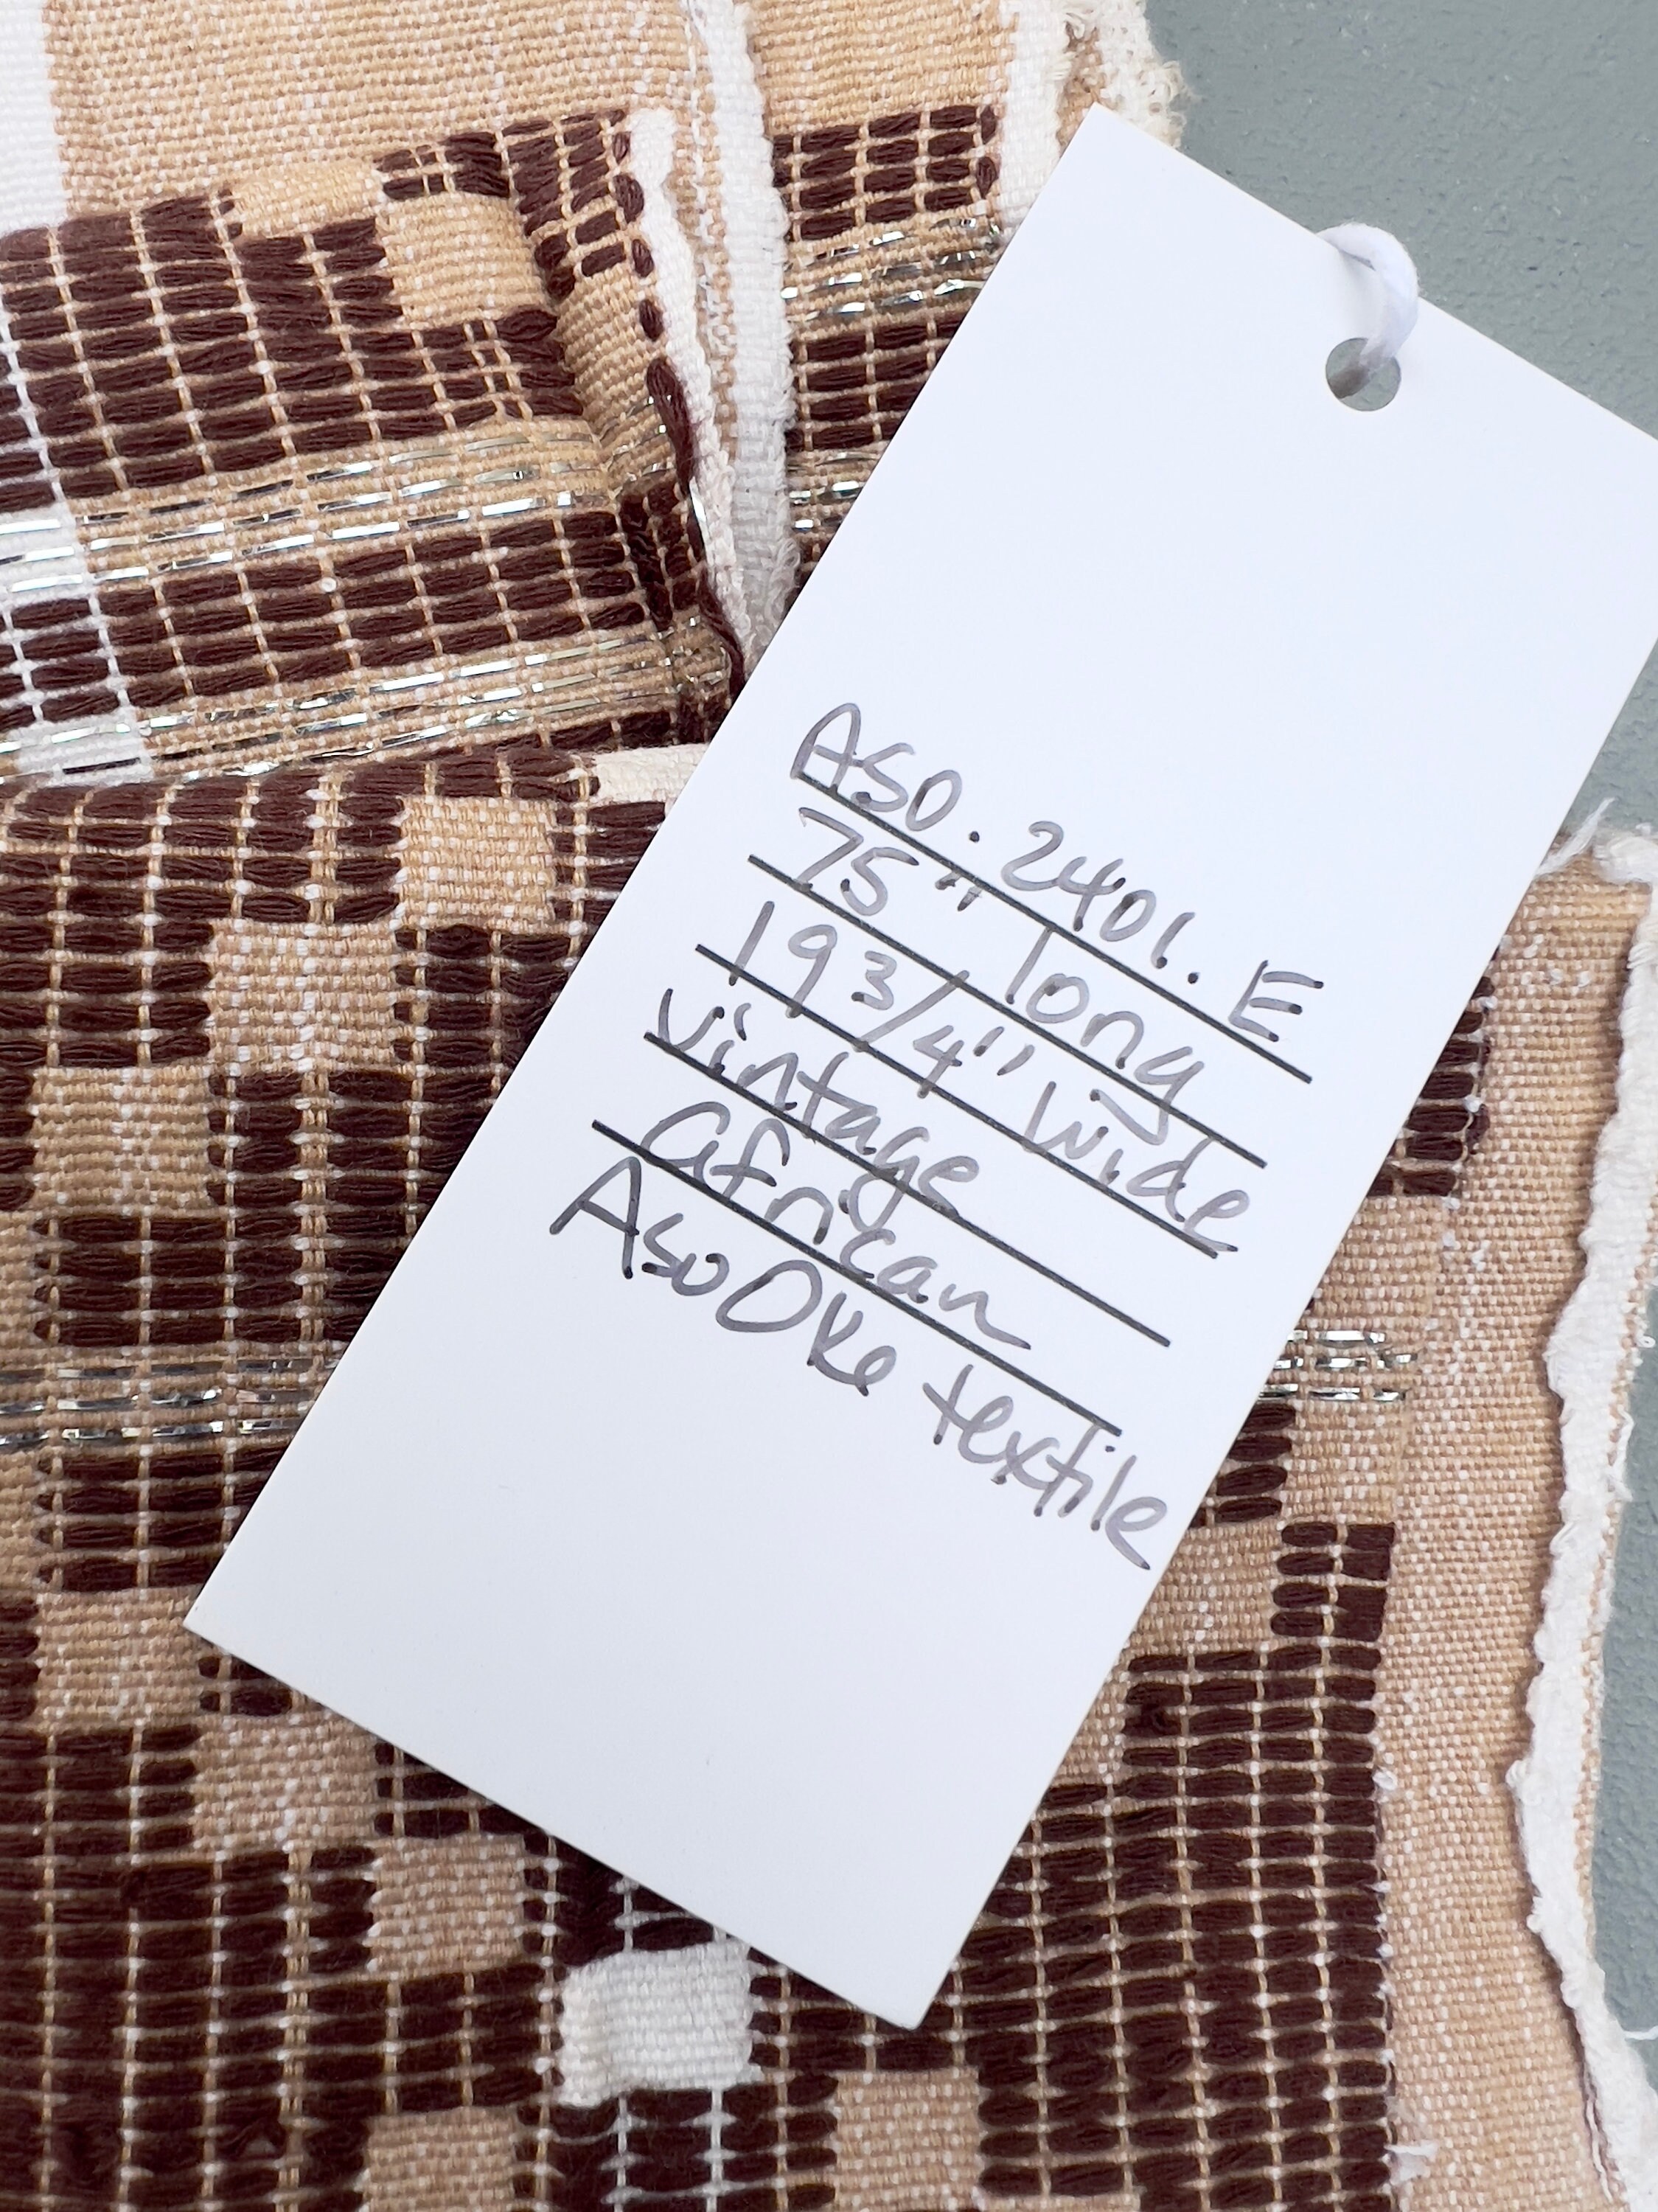 ASO.2401.E
75" long
19 3/4" wide
vintage
african
Aso Oke textile